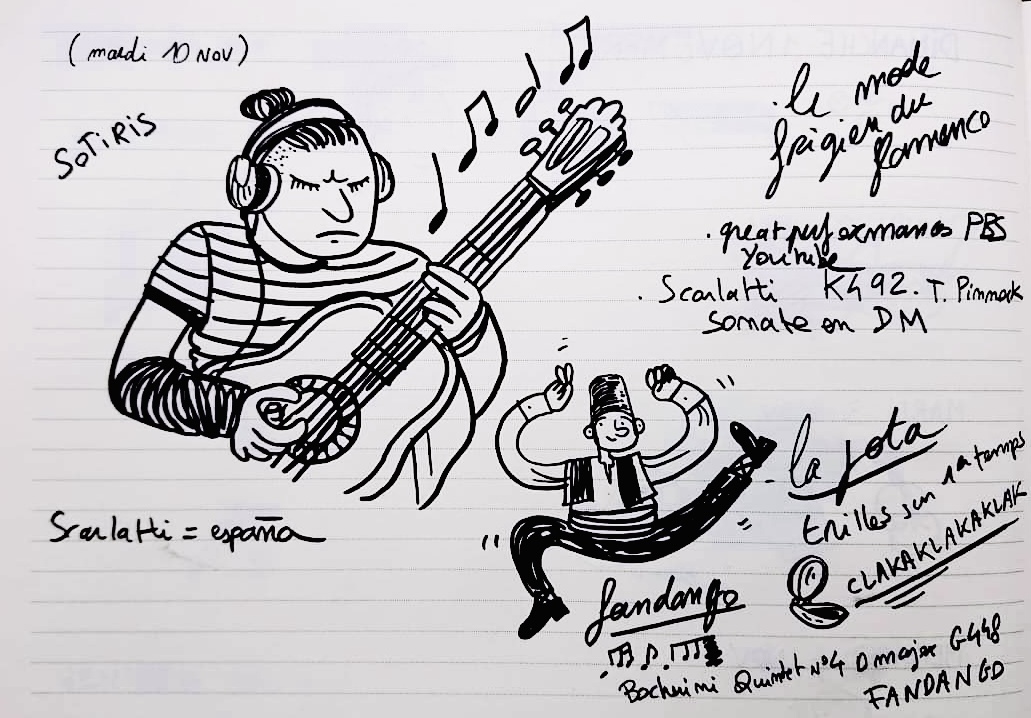 (mardi 10 NOV)
SOTIRIS
le mode
frigien du
flamenco
. great performances PBS
Youtube
. Scarlatti K492. T. Pinnock
Sonate en DM
la jota
trilles sur 1er temps
CLAKAKLAKAKLAK
Scarlatti = españa
fandango
Bocherini Quintet N°4 D major G448
FANDANGO